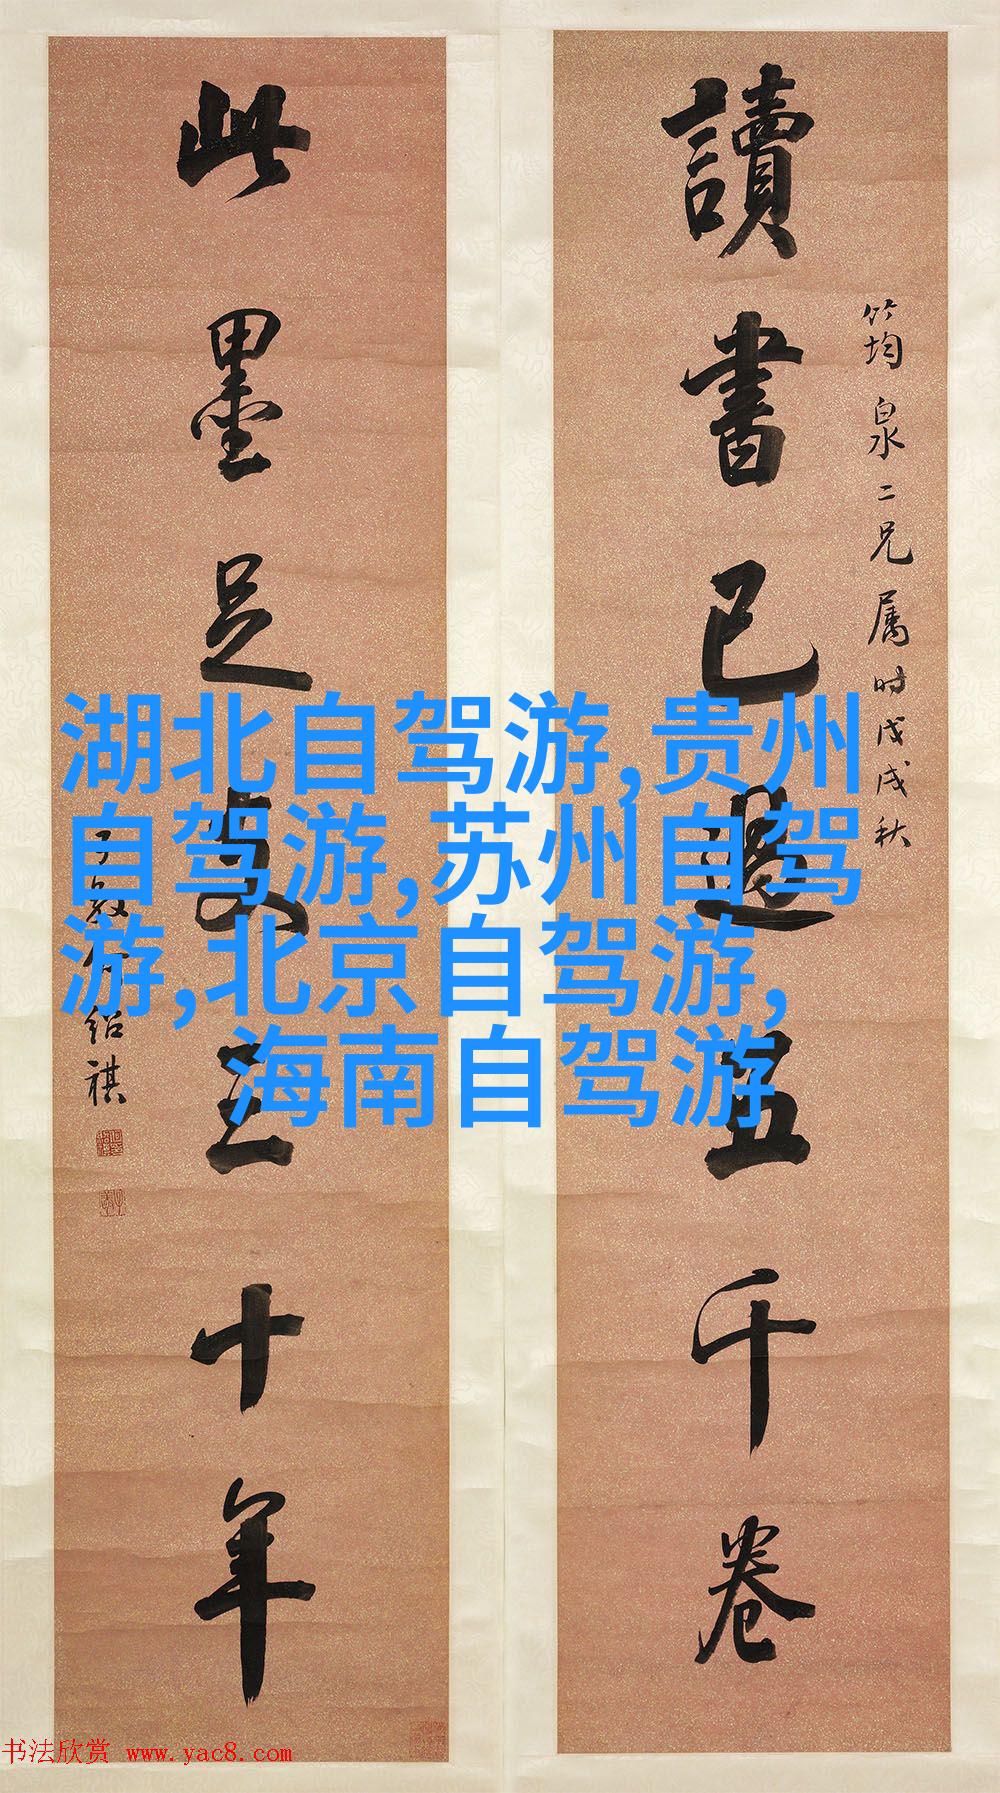 讀書已過五千卷
筠泉二兄属时戊戌秋
此墨足支三十年
子敬何绍祺
湖北自驾游,贵州
自驾游,苏州自驾
游,北京自驾游,
海南自驾游
书法欣赏 www.yac8.com